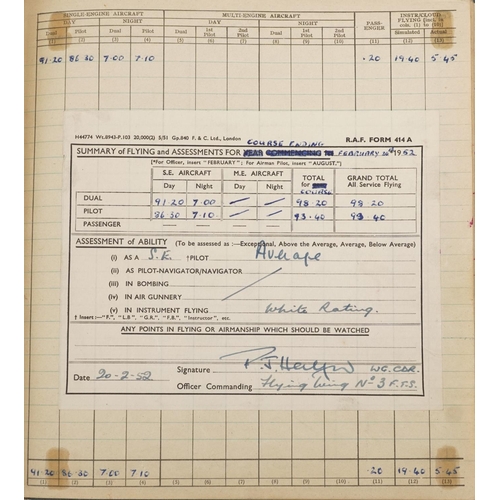 SINGLE-ENGINE AIRCRAFT MULTI-ENGINE AIRCRAFT PASS-ENGER INSTR/CLOUD FLYING [Incl. in cols. (1) to (10)]
DAY NIGHT DAY NIGHT
Dual Pilot Dual Pilot Dual 1st Pilot 2nd Pilot Dual 1st Pilot 2nd Pilot Simulated Actual
(1) (2) (3) (4) (5) (6) (7) (8) (9) (10) (11) (12) (13)
91·20 86·30 7·00 7·10 ·20 19·40 5·45
H44774 Wt.8943-P.103 20,000(2) 5/51 Gp.840 F. & C. Ltd., London R.A.F. FORM 414 A
COURSE ENDING
SUMMARY of FLYING and ASSESSMENTS FOR YEAR COMMENCING 1st FEBRUARY 20th 1952
[*For Officer, insert "FEBRUARY"; For Airman Pilot, insert "AUGUST."]
S.E. AIRCRAFT M.E. AIRCRAFT TOTAL for COURSE GRAND TOTAL All Service Flying
Day Night Day Night
DUAL 91·20 7·00 — — 98·20 98·20
PILOT 86·30 7·10 — — 93·40 93·40
PASSENGER — — — —
ASSESSMENT of ABILITY (To be assessed as :—Exceptional, Above the Average, Average, Below Average)
(i) AS A S.E. †PILOT Average
(ii) AS PILOT-NAVIGATOR/NAVIGATOR
(iii) IN BOMBING
(iv) IN AIR GUNNERY
(v) IN INSTRUMENT FLYING White Rating.
† Insert :—"F.", "L.B", "G.R.", "F.B.", "Instructor", etc.
ANY POINTS IN FLYING OR AIRMANSHIP WHICH SHOULD BE WATCHED
Signature WG.CDR.
Date 20-2-52
Officer Commanding Flying Wing Nº 3 F.T.S.
91·20 86·30 7·00 7·10 ·20 19·40 5·45
(1) (2) (3) (4) (5) (6) (7) (8) (9) (10) (11) (12) (13)